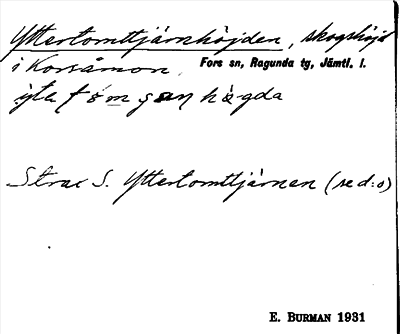 Yttertomttjärnhöjden, skogshöjd
i Korsåmon, Fors sn, Ragunda tg, Jämtl. l.
Strax S. Yttertomttjärnen (se d:o)
E. BURMAN 1931